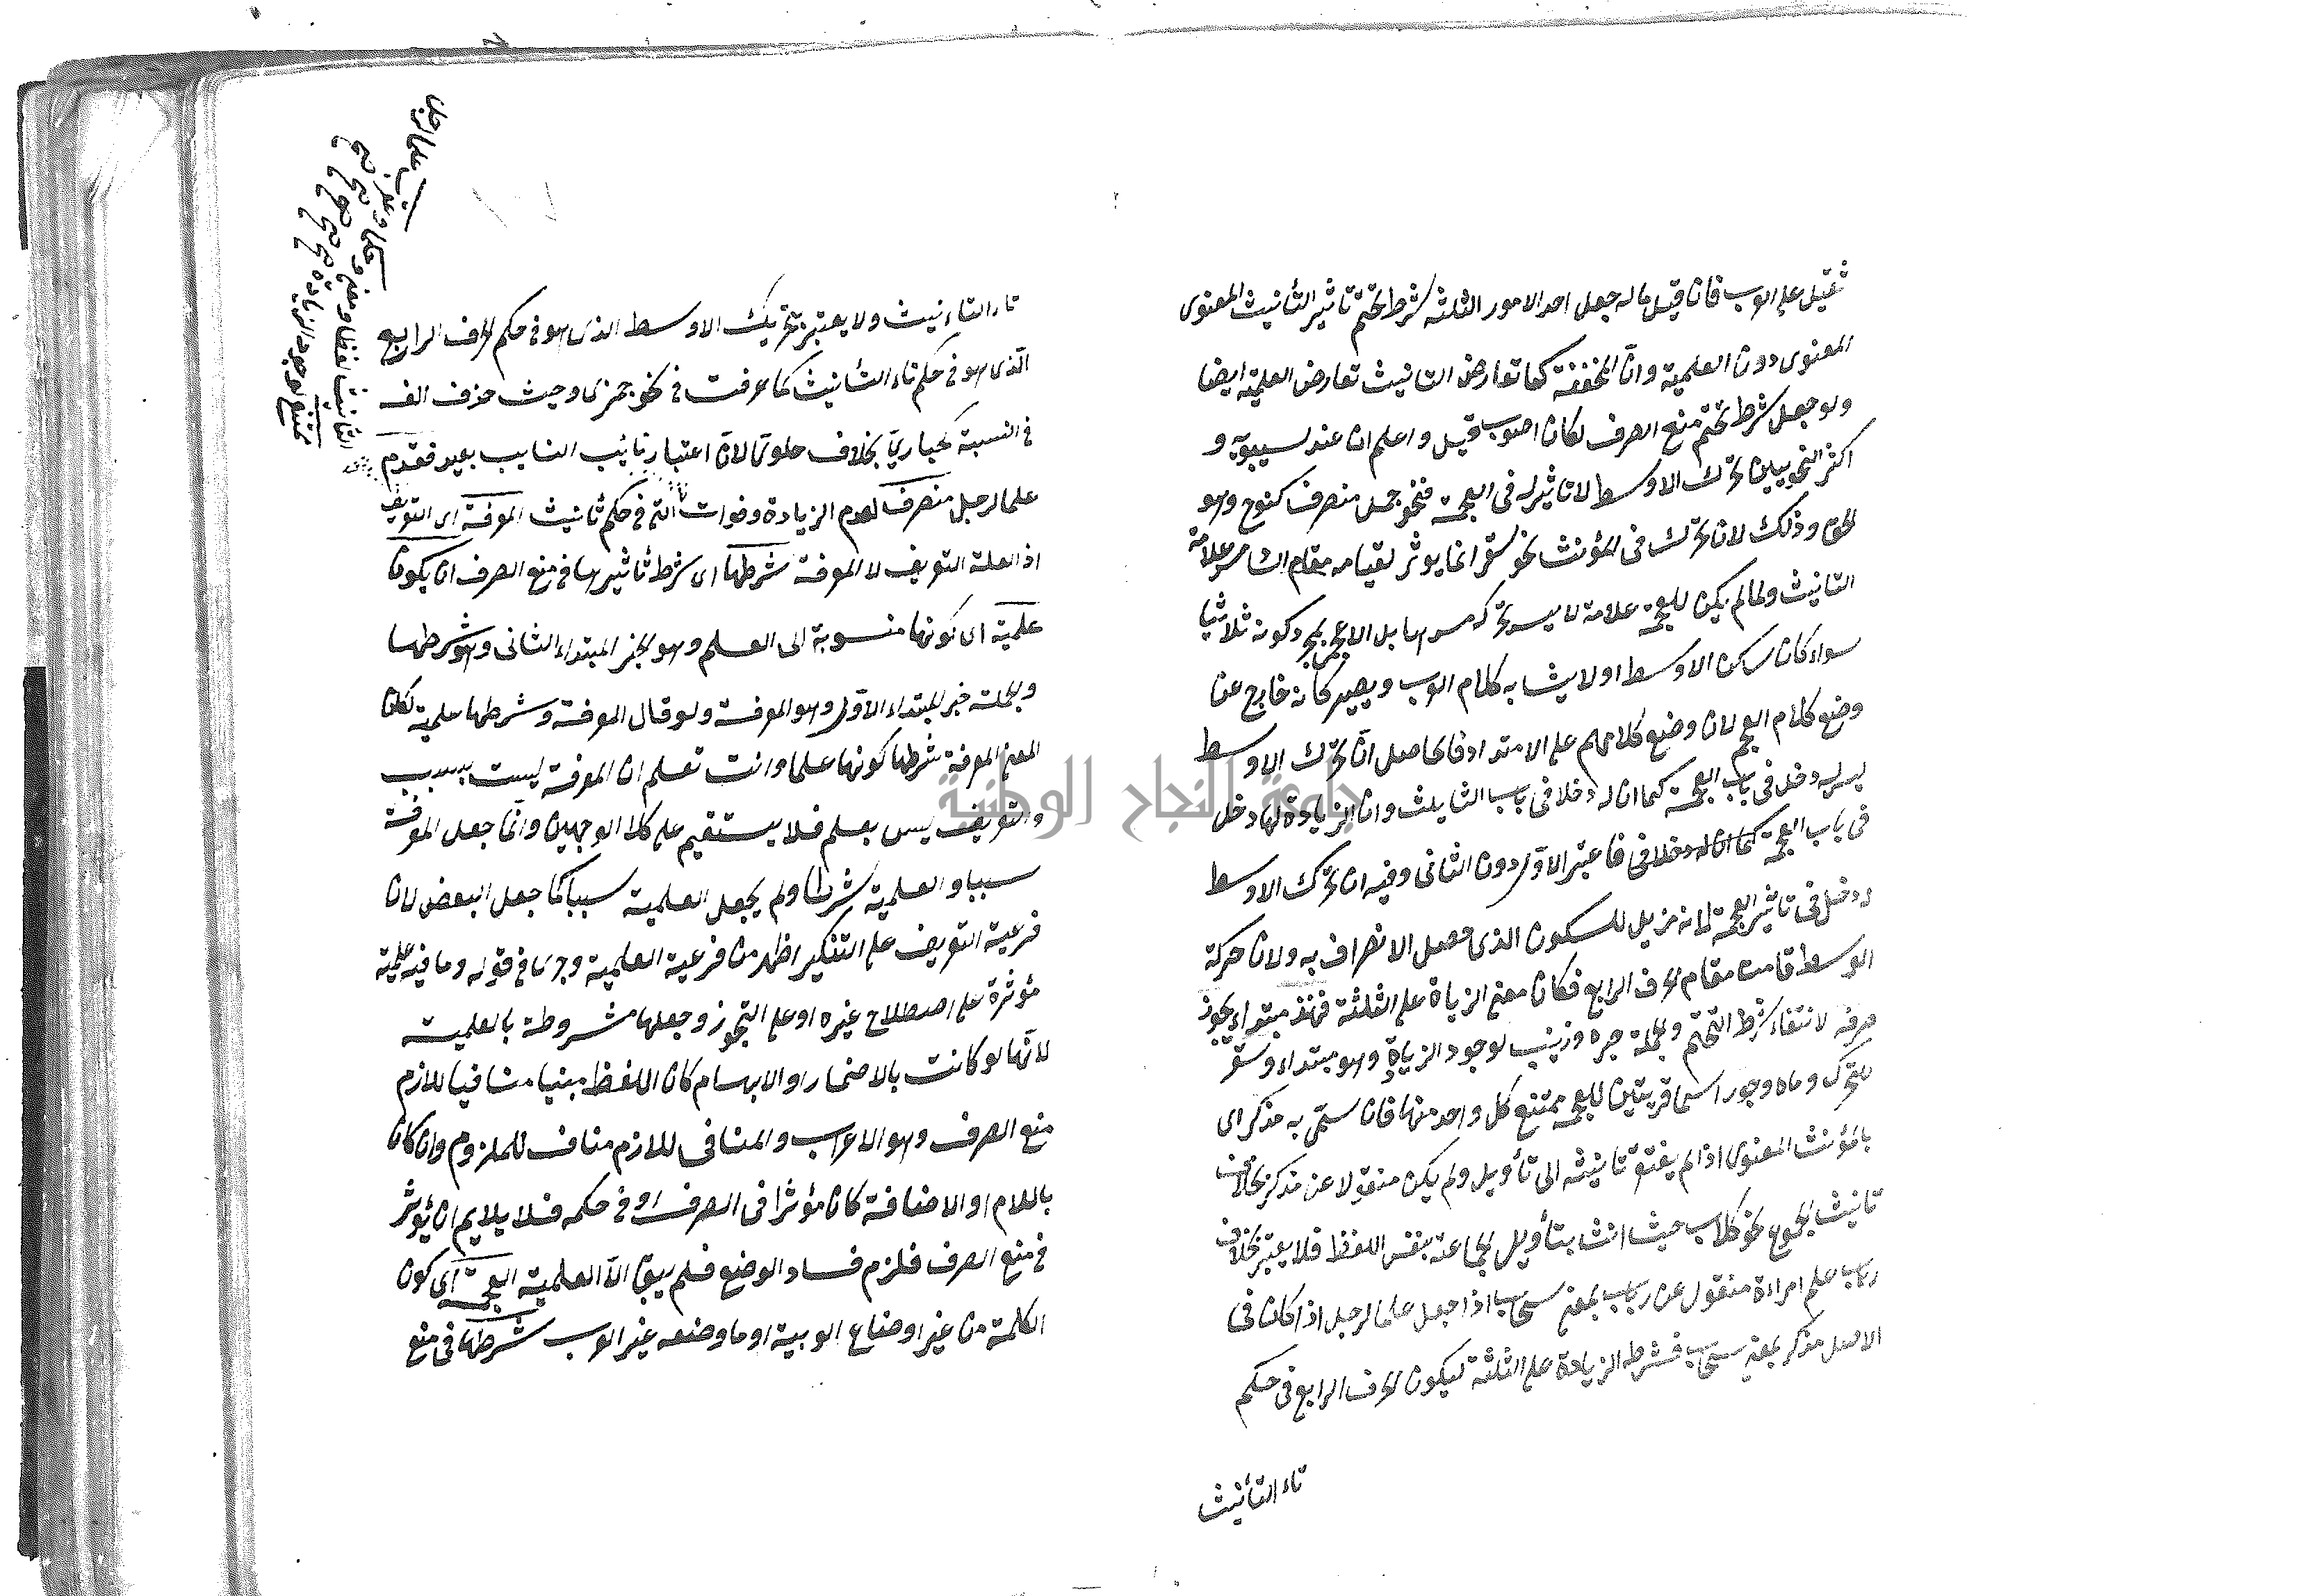 ثقيل على العرب فان قيل ماله جعل احد الامور الثلثة شرط تحتم تاثير التأنيث المعنوى
المعنوى دون العلمية وان الخفة كما تعارض التانيث تعارض العلمية ايضا
ولو جعل شرط تحتم منع الصرف لكان اصوب قيل واعلم ان عند سيبويه و
اكثر النحويين تحرك الاوسط لا تاثير له فى العجمة فنحو جمل منصرف كنوح وهو
الحق وذلك لان تحرك فى المؤنث نحو سقر انما يوثر لقيامه مقام الساد مسد علامة
التانيث ولما لم يكن للعجمة علامة تا يسد تحرك مسدها بل الاعجمى بمجرد كونه ثلاثيا
سواء كان ساكن الاوسط او لا يشابه كلام العرب ويصير كانه خارج عن
وضع كلام العجم لان وضع كلامهم على الامتداد فالحاصل ان تحرك الاوسط
ليس له دخل فى باب العجمة كما ان له دخلا فى باب التانيث وان الزيادة لها دخل
فى باب العجمة كما ان له دخلا فى فاعتبر الاول دون الثانى وفيه ان تحرك الاوسط
له دخل فى تاثير العجمة لانه مزيل للسكون الذى حصل الانصراف به ولان حركة
الوسط قامت مقام الحرف الرابع فكان معنى الزياة على الثلثة فهند مبتداء يجوز
صرفه لانتفاء شرط التحتم والجملة خبره وزينب لوجود الزيادة وهو مبتداء وسقر
للتحرك وماه وجور اسما قريتين للعجمة ممتنع كل واحد منها فان سمى به مذكر اى
بالمؤنث المعنوى اذا لم يفتقر تانيثه الى تأويل ولم يكن منقولا عن مذكر بخلاف
تانيث الجموع نحو كلاب حيث انث بتأويل الجماعة بنفس اللفظ فلا يعتبر بخلاف
رباب علم امراءة منقول عن رباب بمعنى سحاب اذا جعل علما لرجل اذا كان فى
الاصل مذكر بمعنى سحاب فشرطه الزيادة على الثلثة ليكون الحرف الرابع فى حكم
تاء التأنيث
تاء التاءنيث ولا يعتبر بتحريك الاوسط الذى هو فى حكم الحرف الرابع
الذى هو فى حكم تاء التانيث كما عرفت فى نحو جمزى وحيث حذف الف
فى النسبة كحبارى بخلاف حلوى لان اعتبار نائب النايب بعيد فقدم
علما لرجل منصرف لعدم الزيادة وفوات التى فى حكم تانيث المعرفة اى التعريف
اذ العلة التعريف لا المعرفة شرطها اى شرط تاثيرها فى منع الصرف ان يكون
علمية اى كونها منسوبة الى العلم وهو الخبر المبتداء الثانى وهو شرطها
والجملة خبر للمبتداء الاول وهو المعرفة ولو قال المعرفة وشرطها علمية لكان
المعنى المعرفة شرطها كونها علما وانت تعلم ان المعرفة ليست بسبب
والتعريف ليس بعلم فلا يستقيم على كلا الوجهين وانما جعل المعرفة
سببا والعلمية شرطا ولم يجعل العلمية سببا كما جعل البعض لان
فرعية التعريف على التنكير اظهر من فرعية العلمية وجرى فى قوله وما فيه علمية
مؤثرة على اصطلاح غيره او على التجوز وجعلها مشروطة بالعلمية
لانها لو كانت بالاضمار او الابهام كان اللفظ مبنيا منافيا للازم
منع الصرف وهو الاعراب والمنافى للازم مناف للملزوم وان كان
باللام او الاضافة كان مؤثرا فى الصرف او فى حكمه فلا يلايم ان يؤثر
فى منع الصرف فلزم فساد الوضع فلم يبق الا العلمية العجمة اى كون
الكلمة من غير اوضاع العربية او ما وضعه غير العرب شرطها فى منع
التأنيث لفظا ومعنى وحكما
ممتنع لوجود الزيادة
جامعة النجاح الوطنية